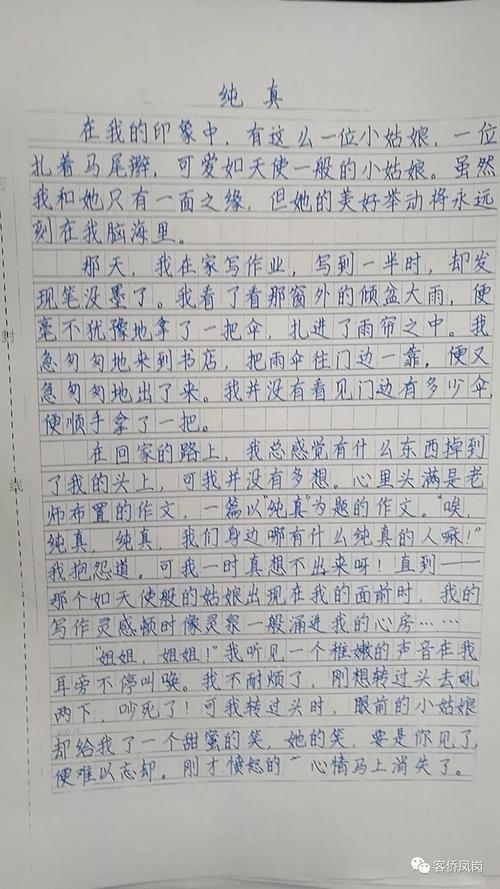 纯真
在我的印象中，有这么一位小姑娘，一位
扎着马尾辫，可爱如天使一般的小姑娘。虽然
我和她只有一面之缘，但她的美好举动将永远
刻在我脑海里。
那天，我在家写作业，写到一半时，却发
现笔没墨了。我看了看那窗外的倾盆大雨，便
毫不犹豫地拿了一把伞，扎进了雨帘之中。我
急匆匆地来到书店，把雨伞往门边一靠，便又
急匆匆地出了来。我并没有看见门边有多少伞，
便顺手拿了一把。
在回家的路上，我总感觉有什么东西掉到
了我的头上，可我并没有多想。心里头满是老
师布置的作文，一篇以“纯真”为题的作文。“唉，
纯真，纯真，我们身边哪有什么纯真的人嘛！”
我抱怨道。可我一时真想不出来呀！直到——
那个如天使般的姑娘出现在我的面前时，我的
写作灵感顿时像灵泉一般涌进我的心房……
“姐姐，姐姐！”我听见一个稚嫩的声音在我
耳旁不停叫唤。我不耐烦了，刚想转过头去吼
两下，吵死了！可我转过头时，眼前的小姑娘
却给我了一个甜蜜的笑，她的笑，要是你见了，
便难以忘却。刚才愤怒的心情马上消失了。
封
线
客侨凤岗